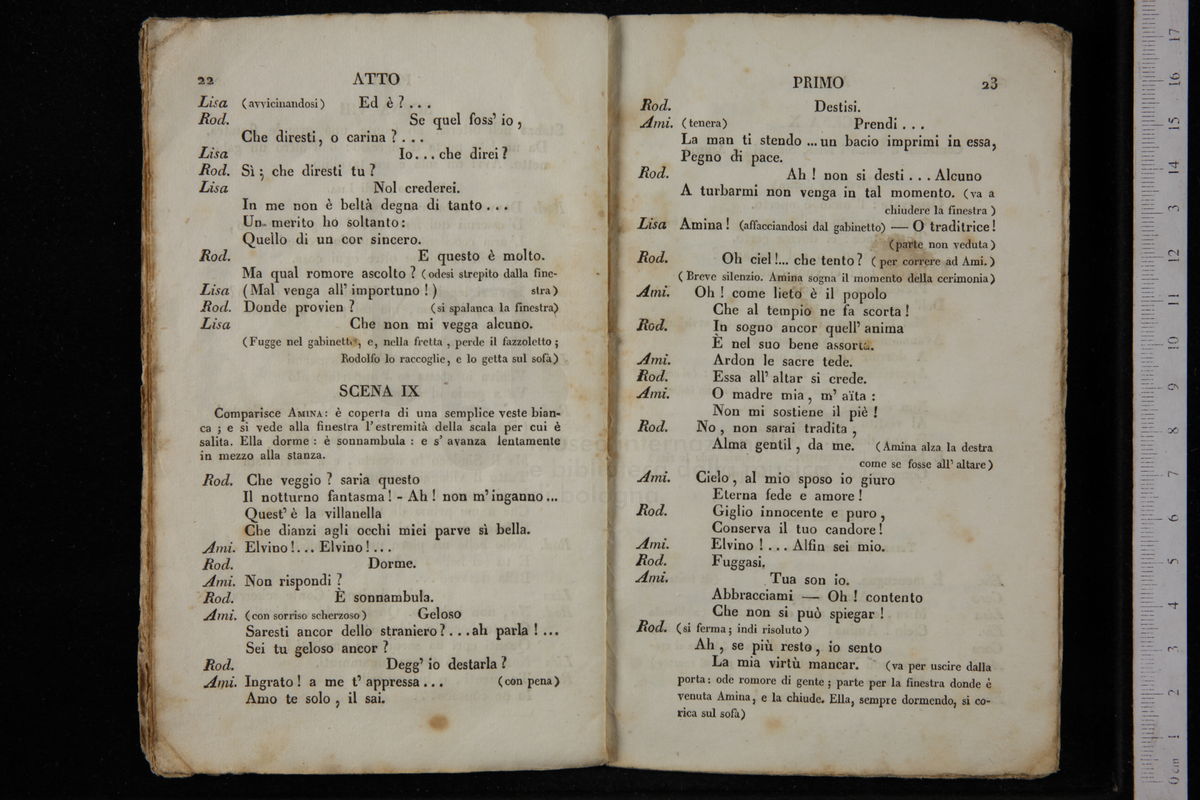 22 ATTO
Lisa (avvicinandosi) Ed è ? . . .
Rod. Se quel foss' io ,
Che diresti, o carina ? . . .
Lisa Io. . . che direi ?
Rod. Sì ; che diresti tu ?
Lisa Nol crederei.
In me non è beltà degna di tanto . . .
Un merito ho soltanto :
Quello di un cor sincero.
Rod. E questo è molto.
Ma qual romore ascolto ? (odesi strepito dalla fine-
Lisa (Mal venga all' importuno ! ) stra)
Rod. Donde provien ? (si spalanca la finestra)
Lisa Che non mi vegga alcuno.
(Fugge nel gabinetto, e, nella fretta , perde il fazzoletto ;
Rodolfo lo raccoglie, e lo getta sul sofà)
SCENA IX
Comparisce AMINA : è coperta di una semplice veste bian-
ca ; e si vede alla finestra l'estremità della scala per cui è
salita. Ella dorme : è sonnambula : e s' avanza lentamente
in mezzo alla stanza.
Rod. Che veggio ? saria questo
Il notturno fantasma ! - Ah ! non m' inganno ...
Quest' è la villanella
Che dianzi agli occhi miei parve sì bella.
Ami. Elvino !. . . Elvino ! . . .
Rod. Dorme.
Ami. Non rispondi ?
Rod. È sonnambula.
Ami. (con sorriso scherzoso) Geloso
Saresti ancor dello straniero ? . . .ah parla ! ...
Sei tu geloso ancor ?
Rod. Degg' io destarla ?
Ami. Ingrato ! a me t' appressa . . . (con pena)
Amo te solo , il sai.
PRIMO 23
Rod. Destisi.
Ami. (tenera) Prendi . . .
La man ti stendo ... un bacio imprimi in essa,
Pegno di pace.
Rod. Ah ! non si desti . . . Alcuno
A turbarmi non venga in tal momento. (va a
chiudere la finestra )
Lisa Amina ! (affacciandosi dal gabinetto) — O traditrice !
(parte non veduta)
Rod. Oh ciel !... che tento ? ( per correre ad Ami. )
( Breve silenzio. Amina sogna il momento della cerimonia)
Ami. Oh ! come lieto è il popolo
Che al tempio ne fa scorta !
Rod. In sogno ancor quell' anima
È nel suo bene assorta.
Ami. Ardon le sacre tede.
Rod. Essa all' altar si crede.
Ami. O madre mia , m' aïta :
Non mi sostiene il piè !
Rod. No , non sarai tradita ,
Alma gentil , da me. (Amina alza la destra
come se fosse all' altare)
Ami. Cielo , al mio sposo io giuro
Eterna fede e amore !
Rod. Giglio innocente e puro ,
Conserva il tuo candore !
Ami. Elvino ! . . . Alfin sei mio.
Rod. Fuggasi.
Ami. Tua son io.
Abbracciami — Oh ! contento
Che non si può spiegar !
Rod. (si ferma ; indi risoluto )
Ah , se più resto , io sento
La mia virtù mancar. (va per uscire dalla
porta : ode romore di gente ; parte per la finestra donde è
venuta Amina, e la chiude. Ella, sempre dormendo, si co-
rica sul sofà)